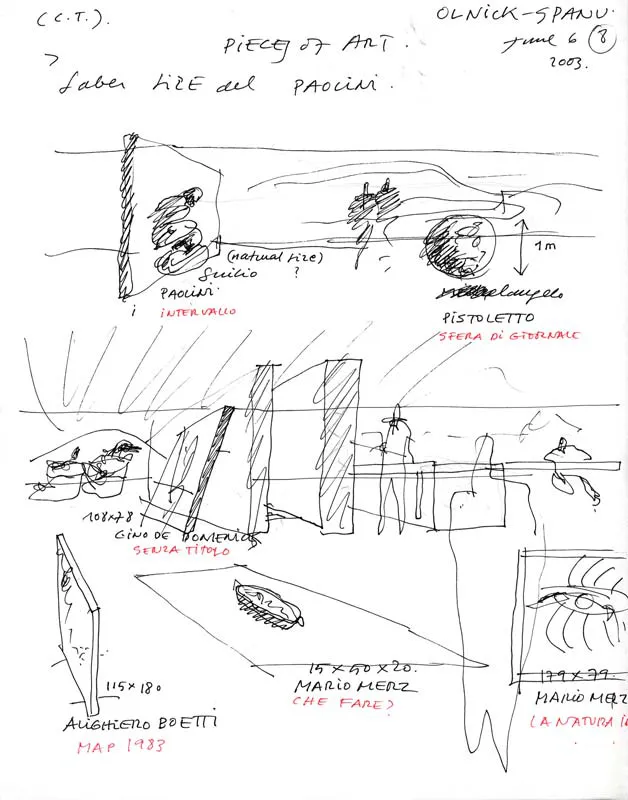 (C.T.).
OLNICK-SPANU.
PIECES OF ART.
June 6 8
2003.
Saber SIZE del PAOLINI.
(natural size)
?
Giulio
PAOLINI
INTERVALLO
1m
PISTOLETTO
SFERA DI GIORNALE
108x78
GINO DE DOMENICIS
SENZA TITOLO
115x180
ALIGHIERO BOETTI
MAP 1983
15x50x20.
MARIO MERZ
CHE FARE?
179x79.
MARIO MERZ
LA NATURA